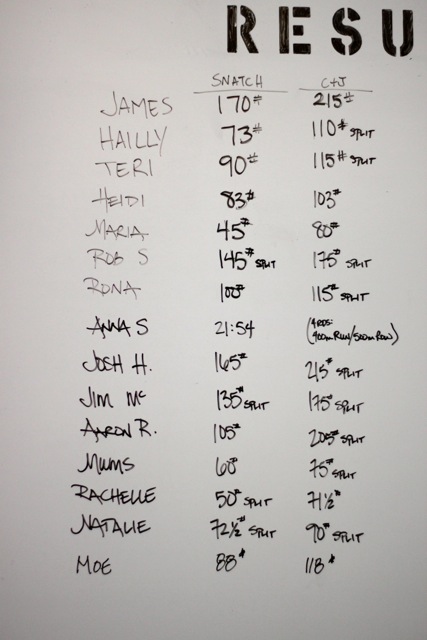 RESU
SNATCH C+J
JAMES 170# 215#
HAILLY 73# 110# SPLIT
TERI 90# 115# SPLIT
HEIDI 83# 103#
MARIA 45# 80#
ROB S 145# SPLIT 175# SPLIT
RONA 100# 115# SPLIT
ANNA S 21:54 (4RDS: 400m RUN/500m ROW)
JOSH H. 165# 215# SPLIT
JIM Mc 135# SPLIT 175# SPLIT
AARON R. 105# 205# SPLIT
MUMS 60# 75# SPLIT
RACHELLE 50# SPLIT 71½#
NATALIE 72½# SPLIT 90# SPLIT
MOE 88# 118#